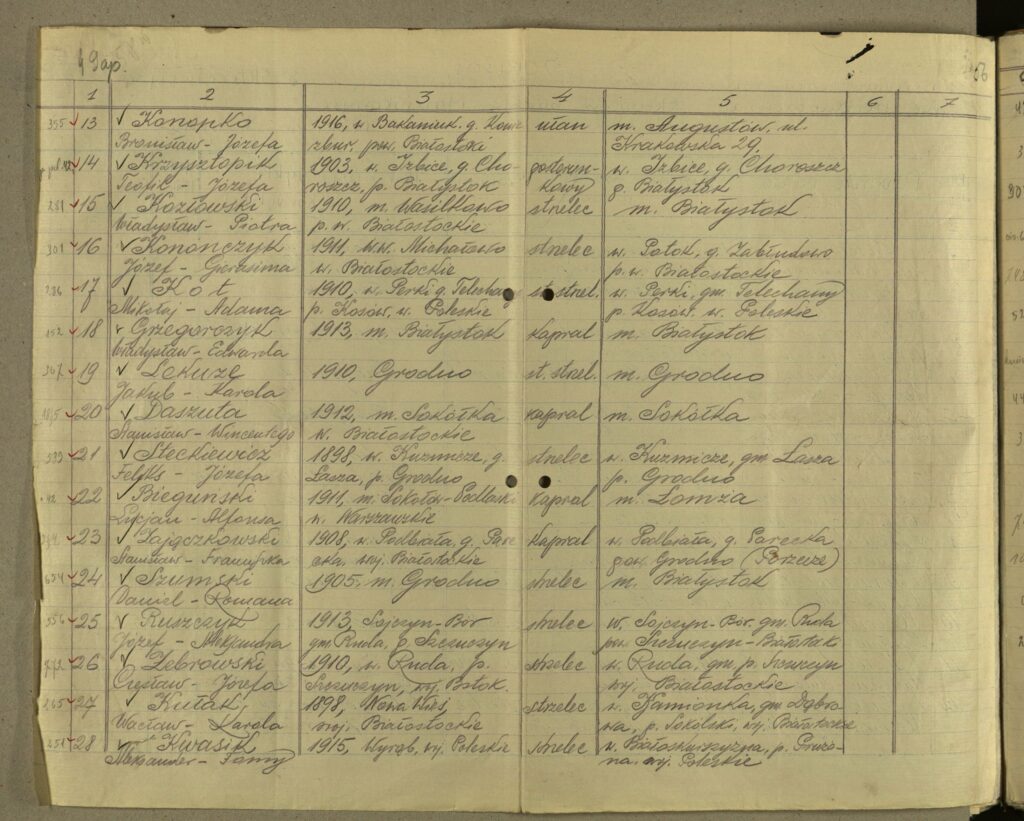 49ap.
1 2 3 4 5 6 7
355 13 Konopko 1916, w. Bakaniuk. g. ułan m. Augustów, ul.
Bronisław - Józefa pow. Białostocki Krakowska 29.
14 Krzysztopik 1903, w. Izbice, g. Cho- posterun- w. Izbice, g. Choroszcz
Teofil - Józefa roszcz, p. Białystok kowy p. Białystok
281 15 Kozłowski 1910, m. Wasilkowo strzelec m. Białystok
Władysław - Piotra p. w. Białostockie
301 16 Kononczyk 1911, w. Michałowo strzelec w. Potok, g. Zabłudowo
Józef - Gierasima w. Białostockie p. w. Białostockie
286 17 Kot 1910, w. Perki g. Telechany st. strzel. w. Perki, gm. Telechany
Mikołaj - Adama p. Kosów, w. Poleskie p. Kosów, w. Poleskie
152 18 Grzegorczyk 1913, m. Białystok kapral m. Białystok
Władysław - Edwarda
367 19 Lekuze 1910, Grodno st. strzel. m. Grodno
Jakub - Karola
20 Daszuta 1912, m. Sokółka kapral m. Sokółka
Stanisław - Wincentego w. Białostockie
533 21 Steckiewicz 1898, w. Kuzmicze, g. strzelec w. Kuzmicze, gm. Łasza
Feliks - Józefa Łasza, p. Grodno p. Grodno
42 22 Biegunski 1911, m. Sokołów-Podlaski kapral m. Łomza
Lucjan - Alfonsa w. Warszawskie
23 Zajączkowski 1908, w. Podbrała, g. kapral w. Podbrała, g. Parecka
Stanisław - Franciszka woj. Białostockie pow. Grodno (Porzeze)
654 24 Szumski 1905. m. Grodno strzelec m. Białystok
Daniel - Romana
556 25 Ruszczyk 1913, Sojczyn-Bor strzelec w. Sojczyn-Bor. gm. Ruda
Józef - Aleksandra gm. Ruda, p. Szczuczyn pow. Szczuczyn-Białostok
26 Zebrowski 1910, w. Ruda, p. strzelec w. Ruda, gm. p. Szczuczyn
Czesław - Józefa Szczuczyn, woj. Białostockie
265 27 Kutak 1898, Nowa Wieś strzelec w. Kamionka, gm. Dąbro
Wacław - Karola woj. Białostockie wa, p. Sokólski, woj. Białostockie
251 28 Kwasik 1915, Wyrąb, woj. Poleskie strzelec
Aleksander - Fomy na. woj. Poleskie